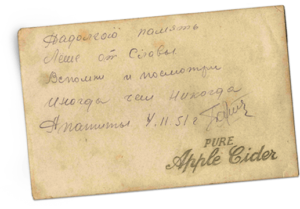 На долгую память
Леше от Славы
Вспомни и посмотри
Иногда чем никогда
Апатиты 4.11 51 г
PURE
Apple Cider